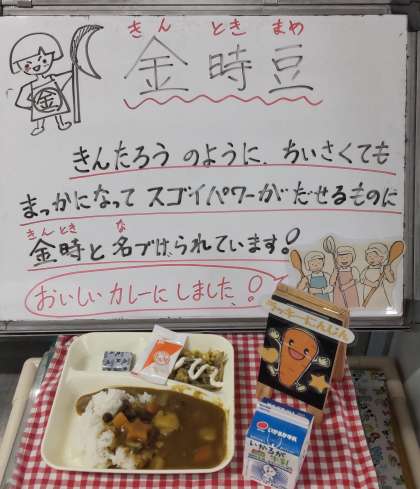 きん とき まめ
金時豆
金
きんたろう のように、ちいさくても
まっかになって スゴイパワーが だせるものに
きん とき な
金時と 名づけられています!
おいしい カレーに しました!
ラッキーにんじん
いかるが牛乳
いかるが